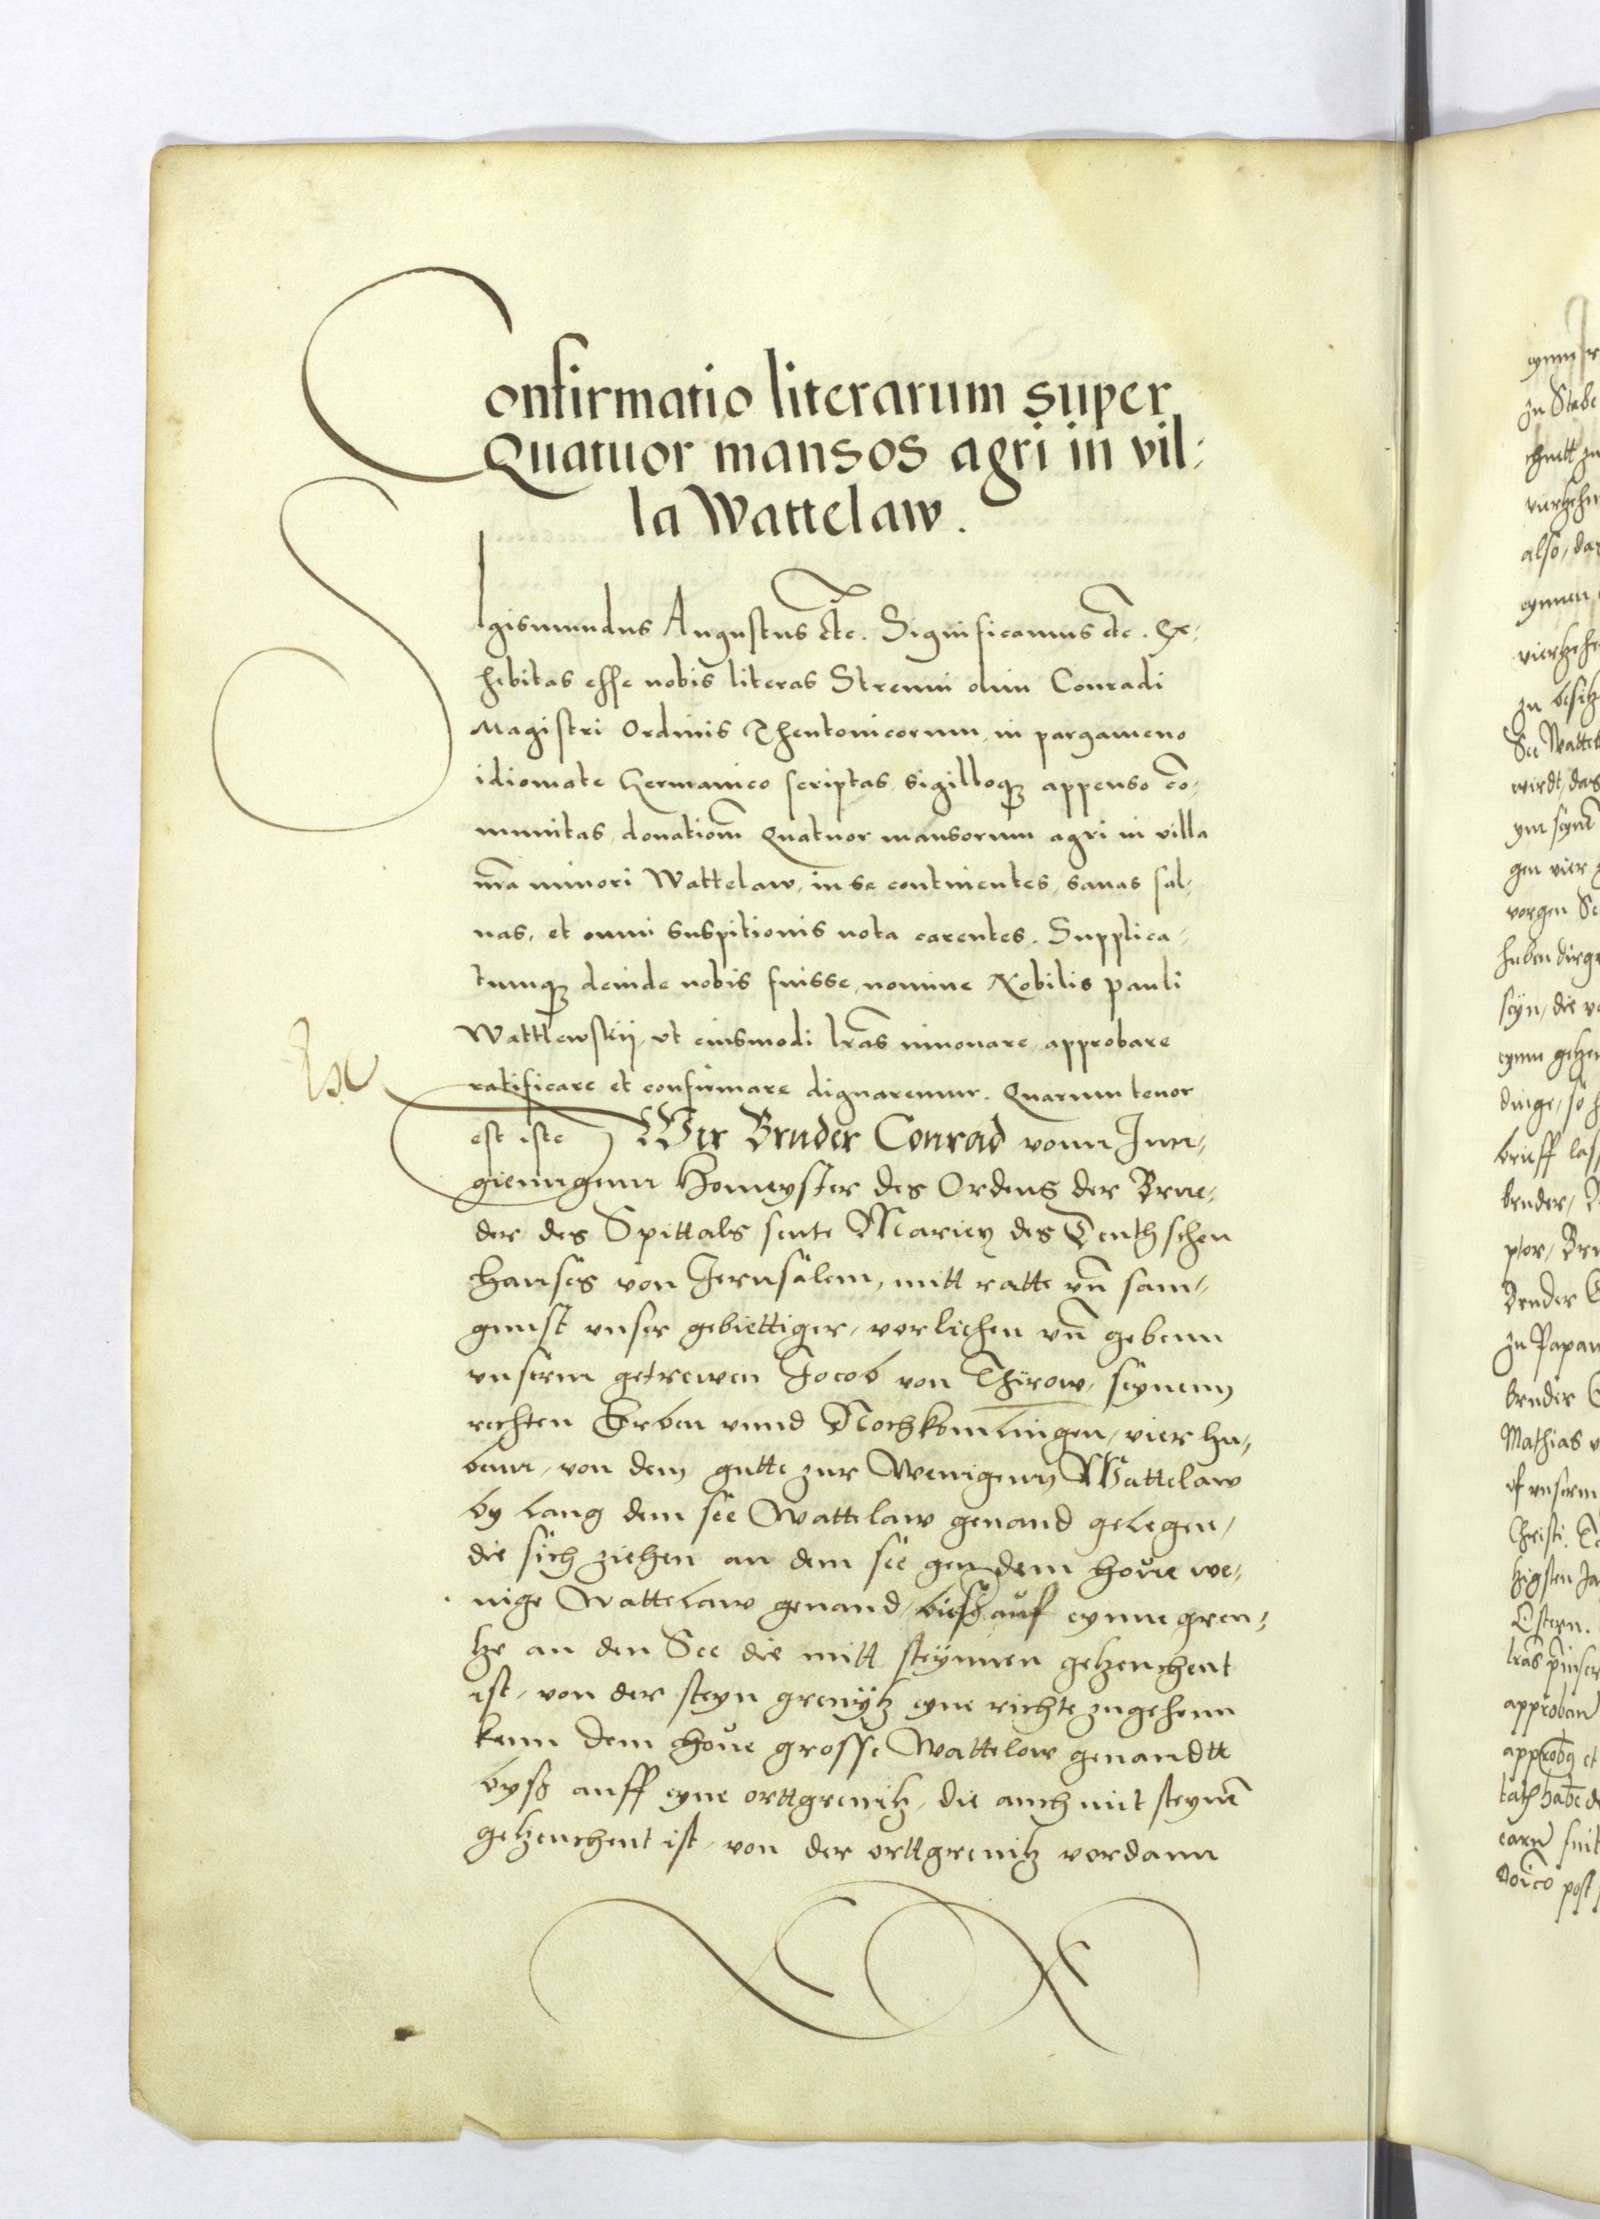 Confirmatio literarum super
Quatuor mansos agri in vil-
la Wattelaw.
Sigismundus Augustus etc. Significamus etc. Ex-
hibitas esse nobis literas Strenui olim Conradi
Magistri Ordinis Theutonicorum, in pargameno
idiomate Germanico scriptas, sigilloq3 appenso co̅-
munitas, donatiom̅ Quatuor mansorum agri in villa
n̅ra minori Wattelaw, in se continentes, sanas sal-
uas, et omni suspitionis nota carentes. Supplica-
tumq3 deinde nobis fuisse, nomine Nobilis Pauli
Wattlewskij, vt eiusmodi lr̅as innouare, approbare
ratificare et confirmare dignaremur. Quarum tenor
est iste Wir Bruder Conrad vonn Jun-
gienngenn Homeyster des Ordens der Brue-
der des Spittals sente Marien des Deuthschen
Hauses von Jerusalem, mitt ratte vn̅ sam-
gunst vnser gebiettiger, vorlichen vn̅ gebenn
vnserm getrewen Jocob von Thirow, seynenn
rechten Erben vnnd Nochkomlingen, vier hu-
benn, von dem gutte zur Wenigenn Wattelaw
by lang dem see Wattelaw genand gelegen,
die sich ziehen an dem see gen dem houe we-
nige Wattelaw genand, biesz auf eynne gren-
tze an den See die mitt steynnen getzeuchent
ist, von der steyn grenytz eyne richte zugehenn
kenn dem houe grosse Wattelow genandtt
bysz auff eyne orttgrenitz, die auch mit steyne̅
getzeuchent ist, von der orttgrenitz vordann